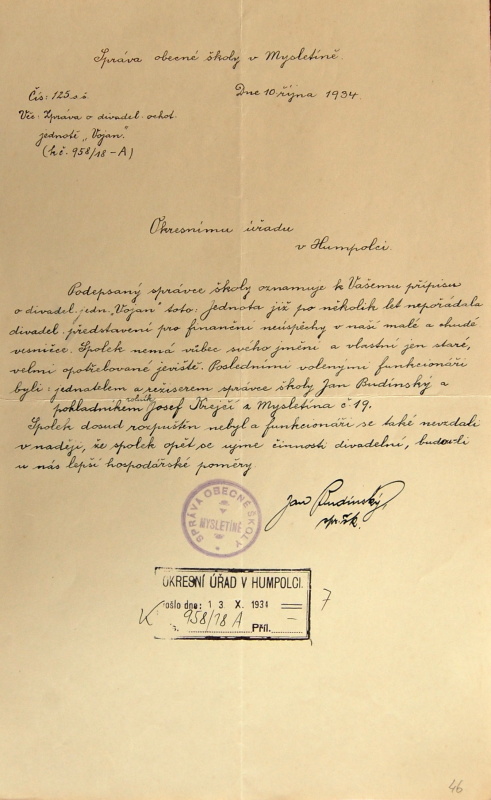 Správa obecné školy v Mysletíně.
Čís: 125.o.š. Dne 10 října 1934.
Věc: Zpráva o divadel. ochot.
jednotě „Vojan."
(k č. 958/18 - A)
Okresnímu úřadu
v Humpolci.
Podepsaný správce školy oznamuje k Vašemu přípisu
o divadel. jedn. „Vojan" toto: Jednota již po několik let nepořádala
divadel. představení pro finanční neúspěchy v naší malé a chudé
vesničce. Spolek nemá vůbec svého jmění a vlastní jen staré,
velmi opotřebované jeviště. Posledními volenými funkcionáři
byli: jednatelem a režiserem správce školy Jan Budinský a
pokladníkem rolník Josef Krejčí z Mysletína č 19.
Spolek dosud rozpuštěn nebyl a funkcionáři se také nevzdali
v naději, že spolek opět se ujme činnosti divadelní, budou-li
u nás lepší hospodářské poměry.
Jan Budinský,
SPRÁVA OBECNÉ ŠKOLY
MYSLETÍNĚ
OKRESNÍ ÚŘAD V HUMPOLCI.
ošlo dne: 1 3. X. 1934
K 958/18 A Příl.
7
46